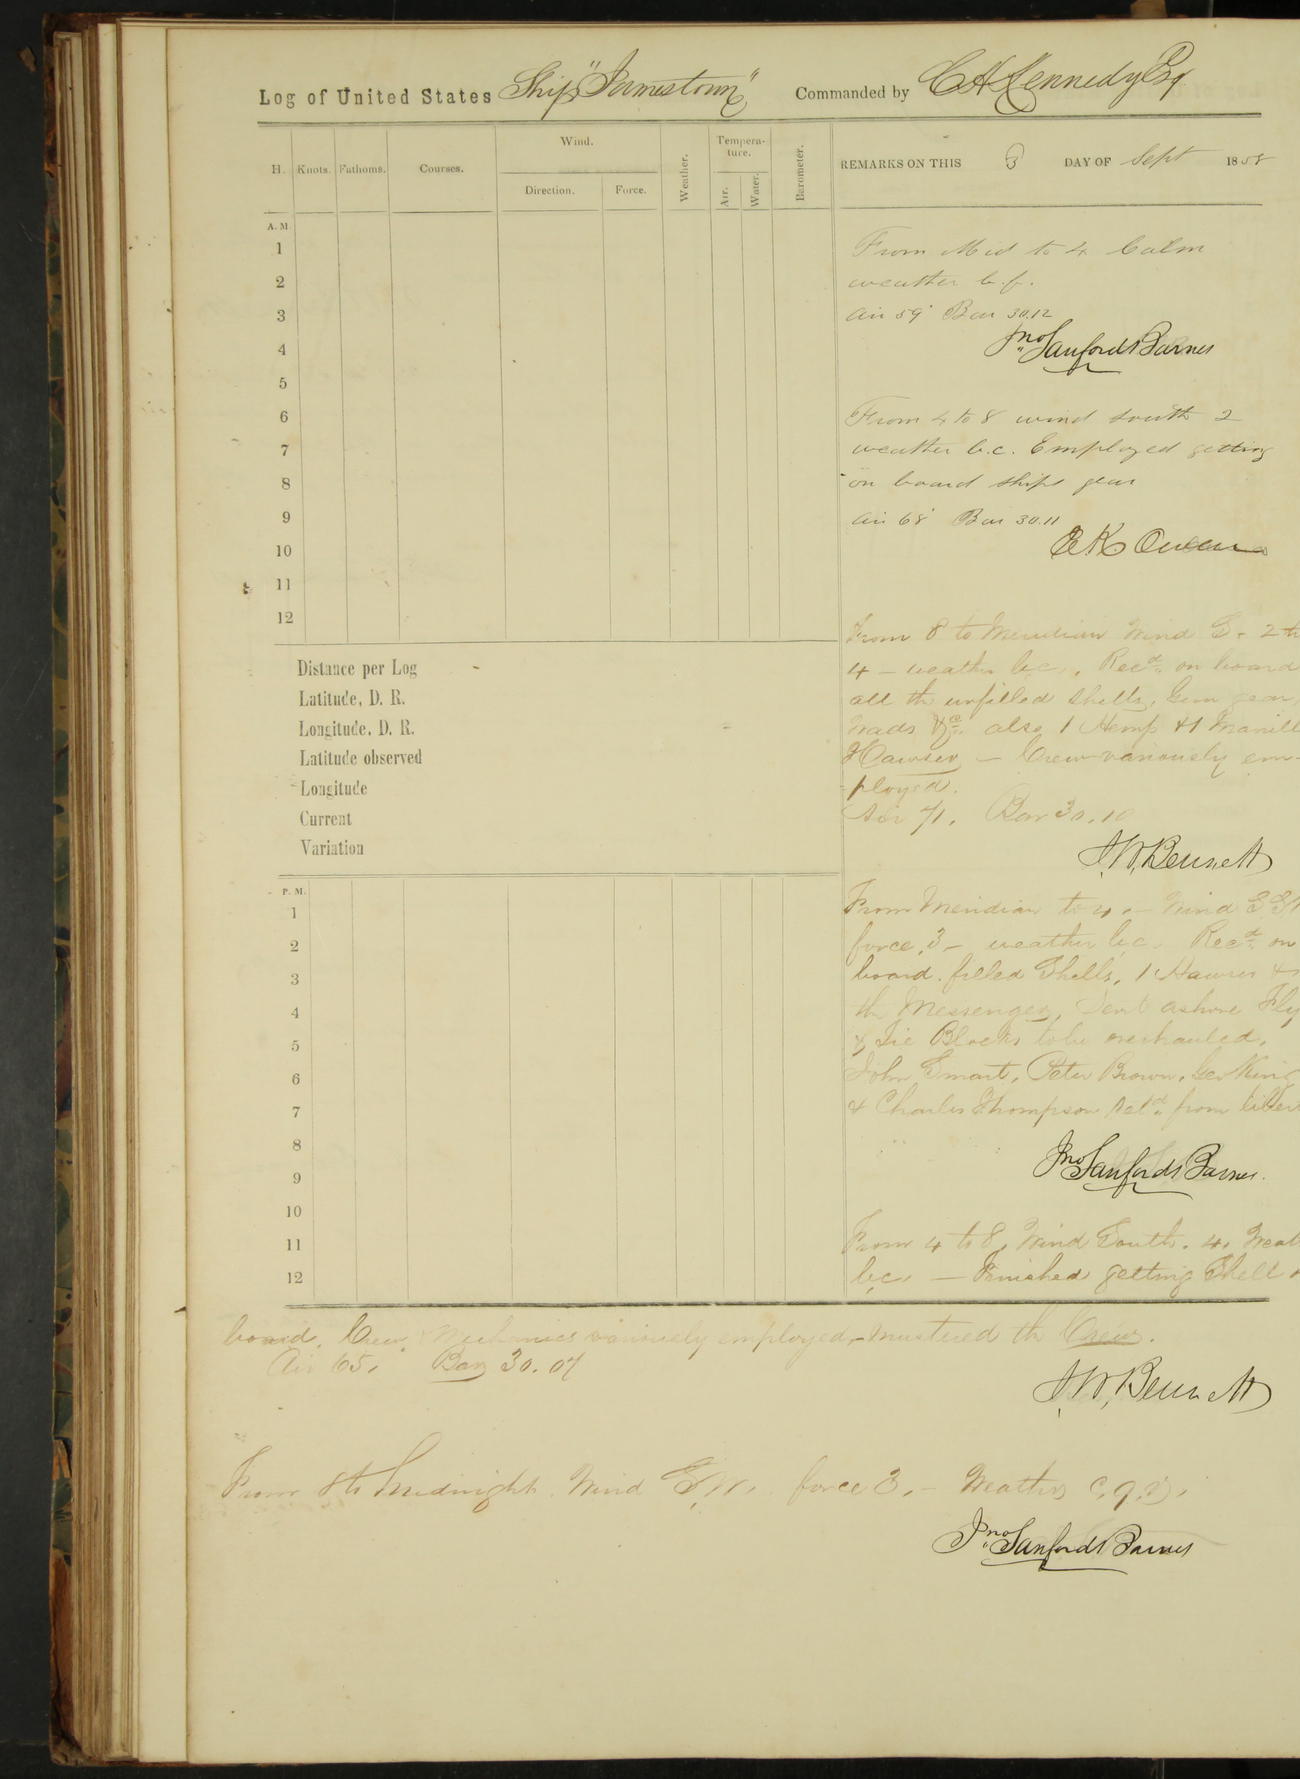 Log of United States Ship "Jamestown" Commanded by C H Kennedy Esq
H. Knots. Fathoms. Courses. Wind. Direction. Force. Weather. Tempera-ture. Air. Water. Barometer. REMARKS ON THIS 3 DAY OF Sept 1858
A. M.
1
2
3
4
5
6
7
8
9
10
11
12
From Mid to 4 Calm
weather b.f.
Air 59° Bar 30.12
Jno Sanford Barnes
From 4 to 8 wind south 2
weather b.c. Employed getting
on board ships gear
Air 68° Bar 30.11
E K Owen
From 8 to Meridian Wind S. 2 to
4 - weather b,c,. Recd on board
all the unfilled Shells, Gun gear,
Wads &c. also 1 Hemp & 1 Manill
Hawser - Crew variously em-
ployed.
Air 71. Bar 30.10
J. W. Bennett
Distance per Log
Latitude, D. R.
Longitude, D. R.
Latitude observed
Longitude
Current
Variation
P. M.
1
2
3
4
5
6
7
8
9
10
11
12
From Meridian to 4,- Wind S
force, 3 - weather b,c. Recd on
board filled Shells, 1 Hawser &
the Messenger, Sent ashore Fly
& Tie Blocks to be overhauled.
John Smart, Peter Brown, Geo King
& Charles Thompson Retd from liber
Jno Sanford Barnes.
From 4 to 8, Wind South. 4, Weat
b,c, - Finished getting Shell
board. Crew & Mechanics variously employed,- mustered the Crew.
Air 65. Bar 30.07
J. W. Bennett
From 8 to Midnight Wind S.W. force 3.- Weather c,q,
Jno Sanford Barnes